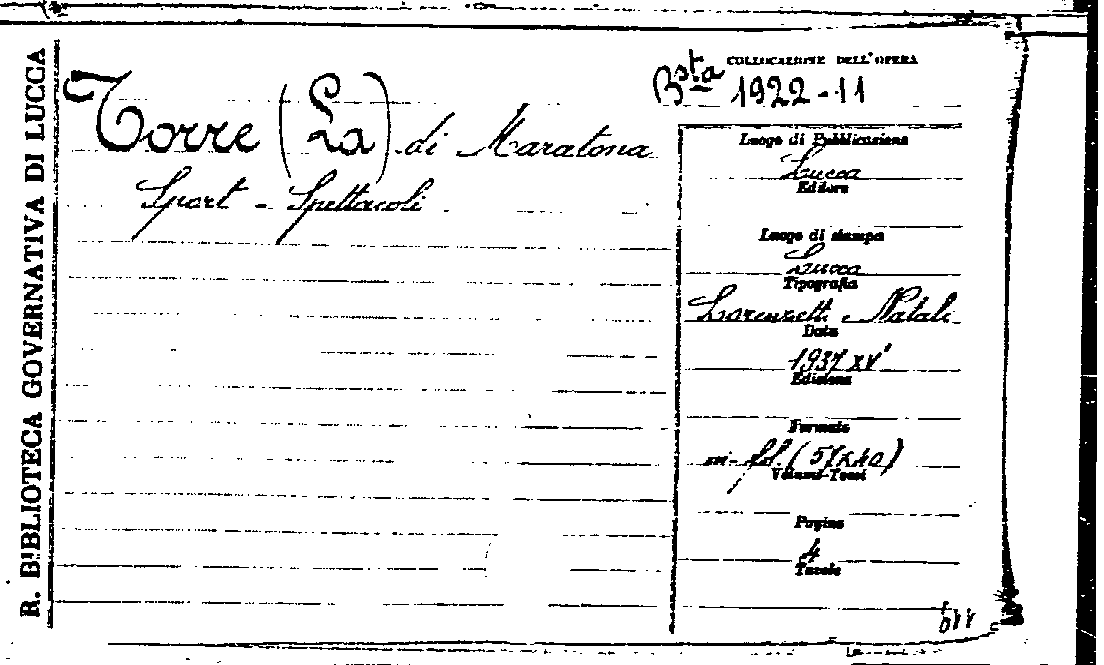 R. BIBLIOTECA GOVERNATIVA DI LUCCA
Torre (La) di Maratona
Sport - Spettacoli
COLLOCAZIONE DELL'OPERA
Bsta 1922-11
Luogo di Pubblicazione
Lucca
Editore
Luogo di stampa
Lucca
Tipografia
Lorenzetti e Natali
Data
1937 XV°
Edizione
Formato
in-fol. (57x40)
Volumi-Tomi
Pagine
4
Tavole